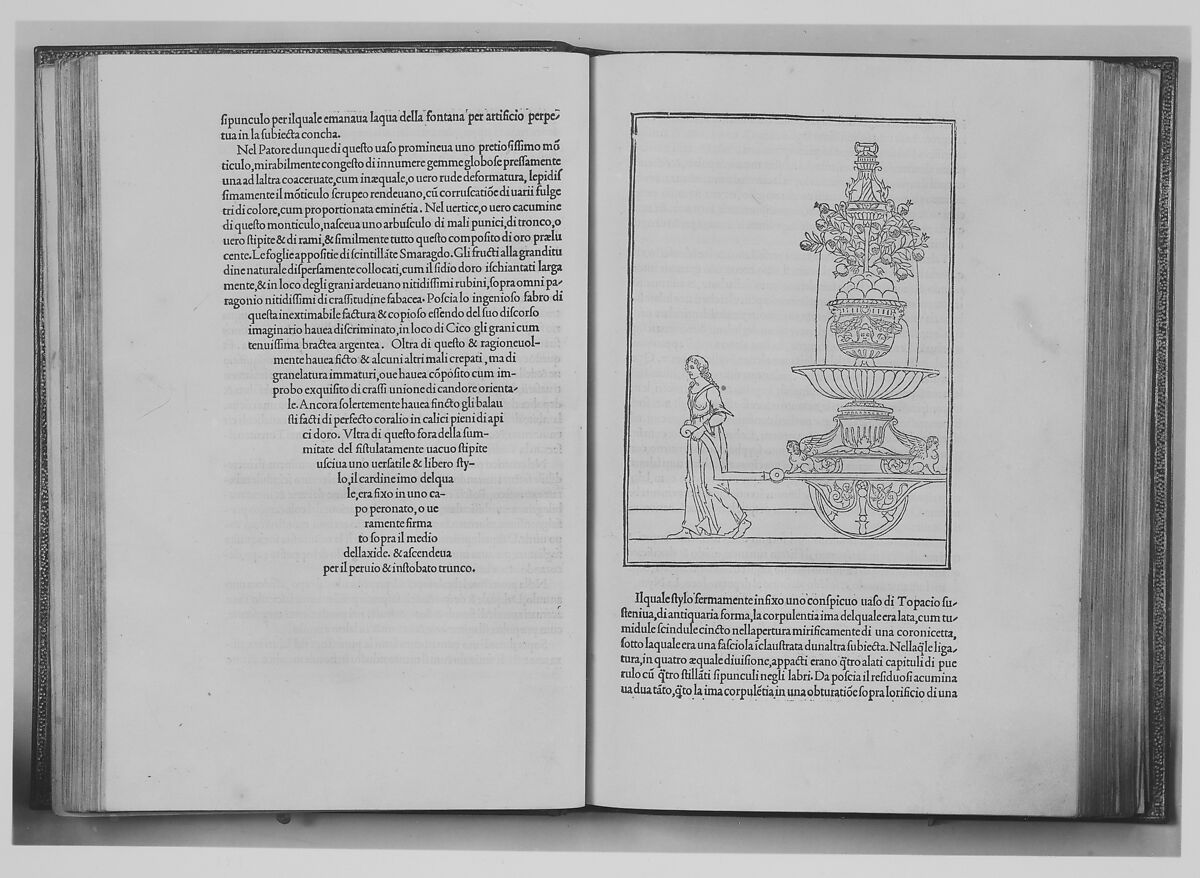 ſipunculo per ilquale emanaua laqua della fontana per artificio perpe-
tua in la ſubiecta concha.
Nel Patore dunque di queſto uaſo promineua uno pretioſiſſimo mō
ticulo, mirabilmente congeſto di innumere gemme globoſe preſſamente
una ad laltra coaceruate, cum inæquale, o uero rude deformatura, lepidiſ
ſimamente il mōticulo ſcrupeo rendeuano, cū corruſcatiōe di uarii fulge
tri di colore, cum proportionata eminētia. Nel uertice, o uero cacumine
di queſto monticulo, naſceua uno arbuſculo di mali punici, di tronco, o
uero ſtipite & di rami, & ſimilmente tutto queſto compoſito di oro prælu
cente. Le foglie appoſitie di ſcintillāte Smaragdo. Gli fructi alla granditu
dine naturale diſperſamente collocati, cum il ſidio doro iſchiantati larga
mente, & in loco degli grani ardeuano nitidiſſimi rubini, ſopra omni pa-
ragonio nitidiſſimi di craſſitudine fabacea. Poſcia lo ingenioſo fabro di
queſta inextimabile factura & copioſo eſſendo del ſuo diſcorſo
imaginario hauea diſcriminato, in loco di Cico gli grani cum
tenuiſſima bractea argentea. Oltra di queſto & ragioneuol-
mente hauea ficto & alcuni altri mali crepati, ma di
granelatura immaturi, oue hauea cōpoſito cum im-
probo exquiſito di craſſi unione di candore orienta-
le. Ancora ſolertemente hauea fincto gli balau
ſti facti di perfecto coralio in calici pieni di api
ci doro. Vltra di queſto fora della ſum-
mitate del fiſtulatamente uacuo ſtipite
uſciua uno uerſatile & libero ſty-
lo, il cardine imo delqua
le, era fixo in uno ca-
po peronato, o ue
ramente firma
to ſopra il medio
dellaxide. & aſcendeua
per il peruio & inſtobato trunco.
Ilquale ſtylo fermamente infixo uno conſpicuo uaſo di Topacio ſu-
ſteniua, di antiquaria forma, la corpulentia ima delquale era lata, cum tu-
midule ſcindule cincto nellapertura mirificamente di una coronicetta,
ſotto laquale era una faſciola iſclauſtrata dunaltra ſubiecta. Nellaq̄le liga-
tura, in quatro æquale diuiſione, appacti erano q̄tro alati capituli di pue
rulo cū q̄tro ſtillāti ſipunculi negli labri. Da poſcia il reſiduo ſi acumina
ua dua tāto, q̄to la ima corpulētia in una obturatiōe ſopra lorificio di una